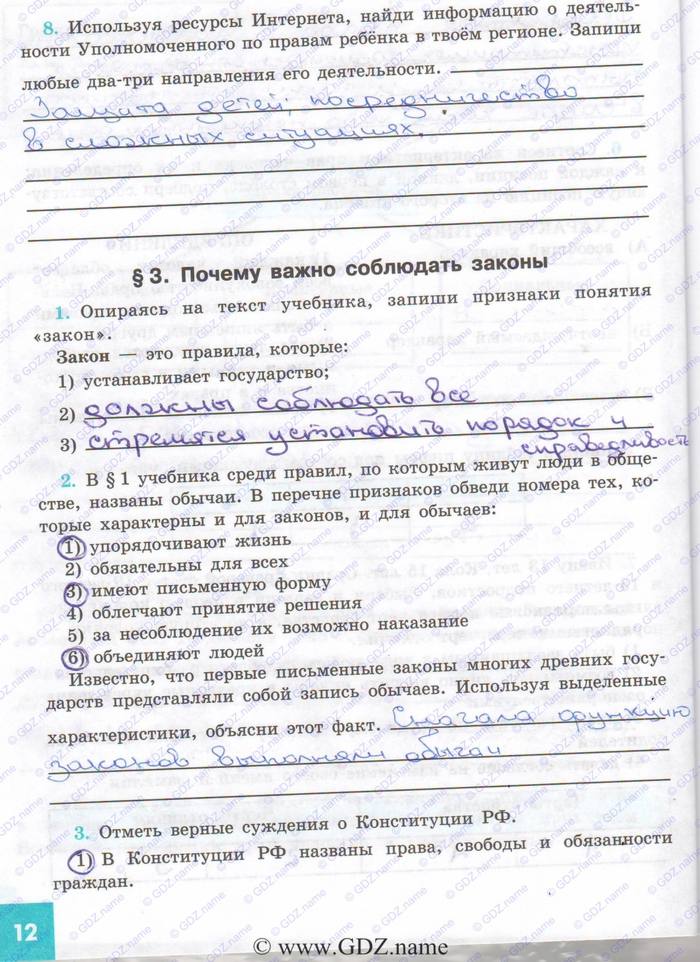 8. Используя ресурсы Интернета, найди информацию о деятель-
ности Уполномоченного по правам ребёнка в твоём регионе. Запиши
любые два-три направления его деятельности.
Защита детей, посредничество
в сложных ситуациях.
§ 3. Почему важно соблюдать законы
1. Опираясь на текст учебника, запиши признаки понятия
«закон».
Закон — это правила, которые:
1) устанавливает государство;
2) должны соблюдать все
3) стремятся установить порядок и
справедливость
2. В § 1 учебника среди правил, по которым живут люди в обще-
стве, названы обычаи. В перечне признаков обведи номера тех, ко-
торые характерны и для законов, и для обычаев:
1) упорядочивают жизнь
2) обязательны для всех
3) имеют письменную форму
4) облегчают принятие решения
5) за несоблюдение их возможно наказание
6) объединяют людей
Известно, что первые письменные законы многих древних госу-
дарств представляли собой запись обычаев. Используя выделенные
характеристики, объясни этот факт. Сначала функцию
законов выполняли обычаи
3. Отметь верные суждения о Конституции РФ.
1) В Конституции РФ названы права, свободы и обязанности
граждан.
12
© www.GDZ.name